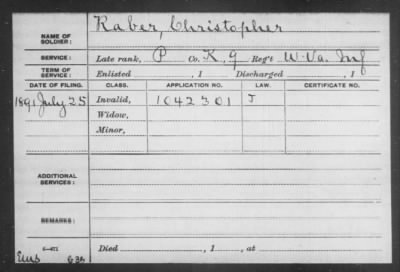 NAME OF SOLDIER: Raber, Christopher
SERVICE: Late rank, P Co. K, 9 Reg't W. Va. Inf
TERM OF SERVICE: Enlisted , 1 Discharged , 1
DATE OF FILING. CLASS. APPLICATION NO. LAW. CERTIFICATE NO.
1891 July 25 Invalid, 1042301 J
Widow,
Minor,
ADDITIONAL SERVICES:
REMARKS:
Died , 1 , at